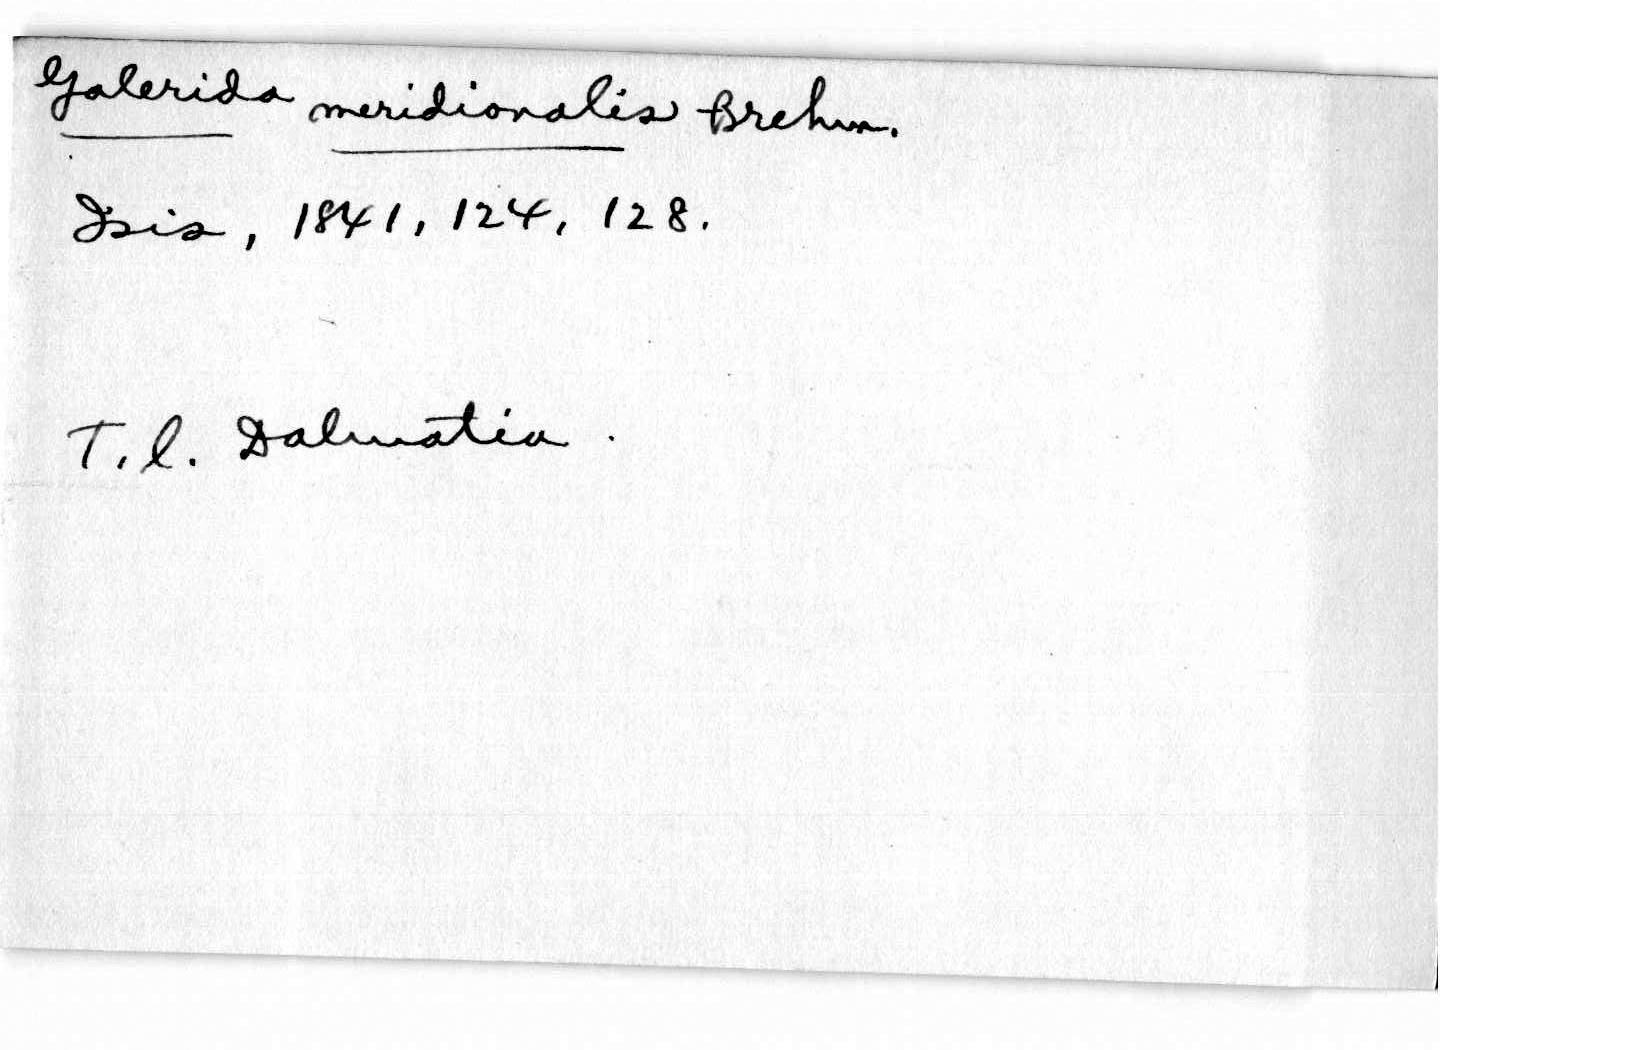 Galerida meridionalis Brehm.
Isis, 1841, 124, 128.
T.l. Dalmatia.